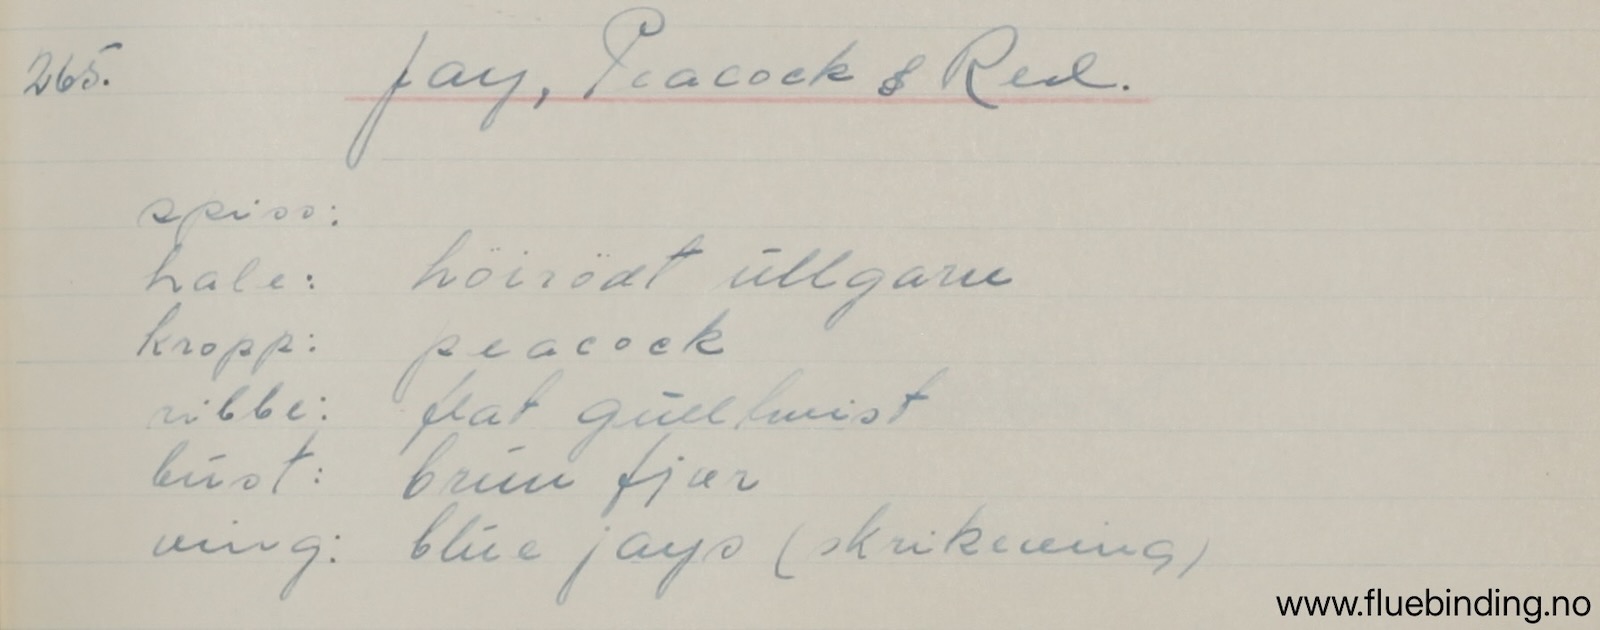 265. Jay, Peacock & Red.
spiss:
hale: höirödt ullgarn
kropp: peacock
ribbe: flat gulltwist
bust: brun fjær
ving: blue jays (skrikeving)
www.fluebinding.no